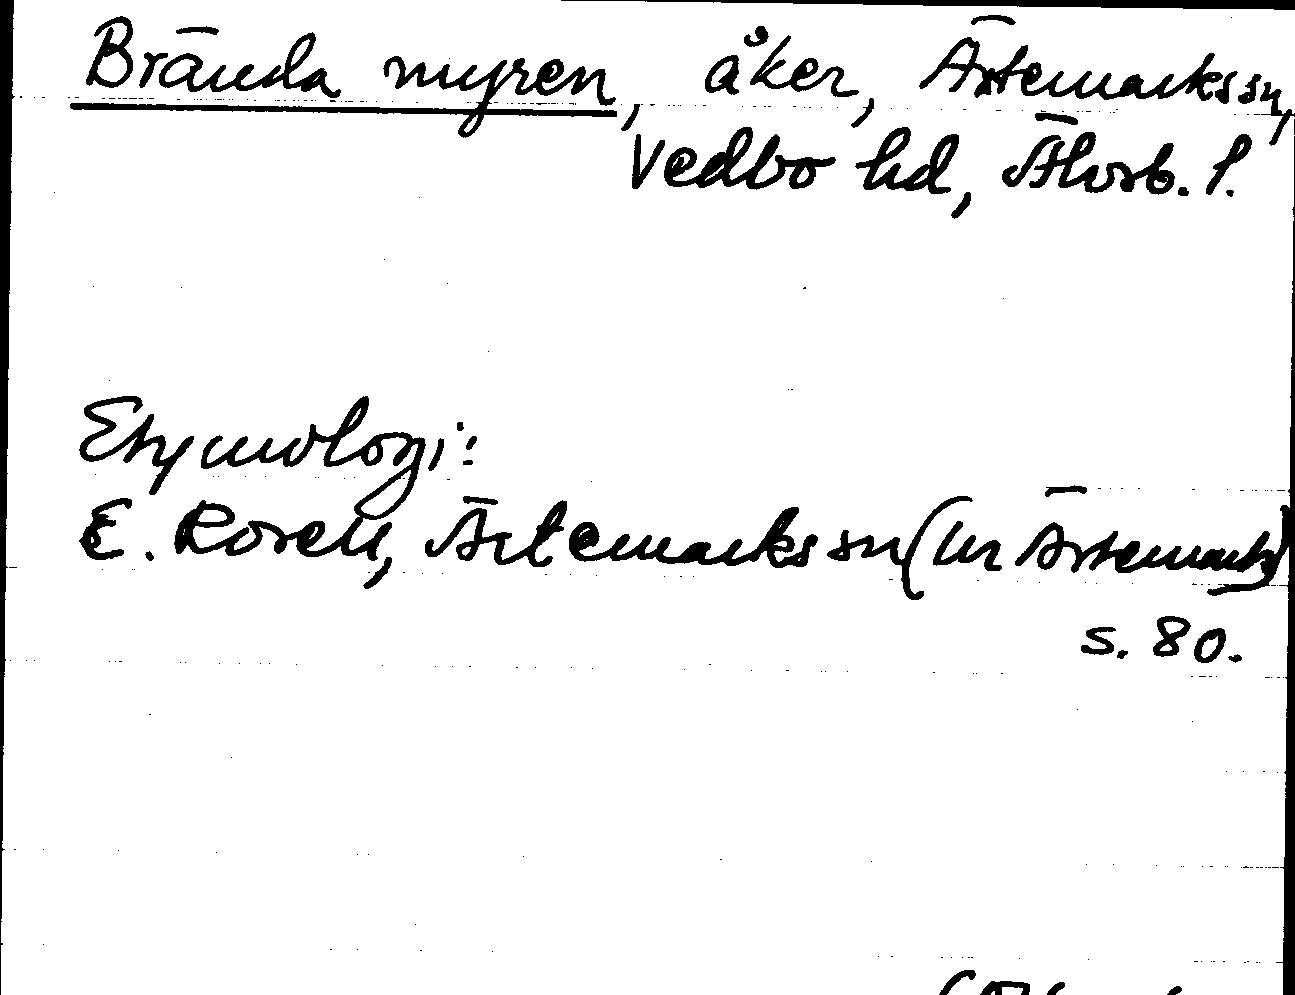 Brända myren, åker, Ärtemarks sn,
Vedbo hd, Älvsb. l.
Etymologi:
E. Rosell, Ärtemarks sn (ur Ärtemark)
s. 80.